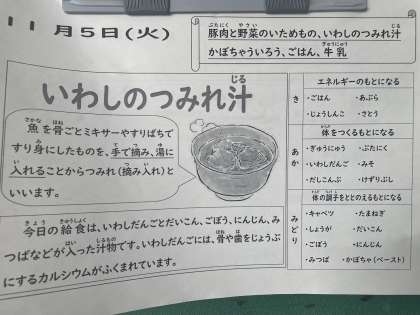 11月5日(火)
豚肉と野菜のいためもの、いわしのつみれ汁
かぼちゃういろう、ごはん、牛乳
いわしのつみれ汁
魚を骨ごとミキサーやすりばちで
すり身にしたものを、手で摘み、湯に
入れることからつみれ(摘み入れ)と
いいます。
今日の給食は、いわしだんごとだいこん、ごぼう、にんじん、み
つばなどが入った汁物です。いわしだんごには、骨や歯をじょうぶ
にするカルシウムがふくまれています。
き
エネルギーのもとになる
・ごはん ・あぶら
・じょうしんこ ・さとう
あか
体をつくるもとになる
・ぎゅうにゅう ・ぶたにく
・いわしだんご ・みそ
・だいこんぶ ・けずりぶし
みどり
体の調子をととのえるもとになる
・キャベツ ・たまねぎ
・しょうが ・だいこん
・ごぼう ・にんじん
・みつば ・かぼちゃ(ペースト)